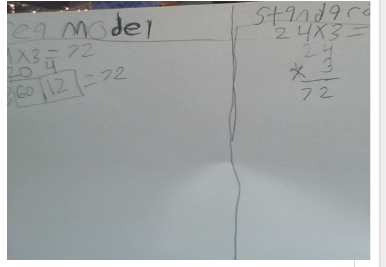 ea model
1 x 3 = 72
20 4
3 60 12 = 72
Standard
24 x 3 =
24
x 3
72